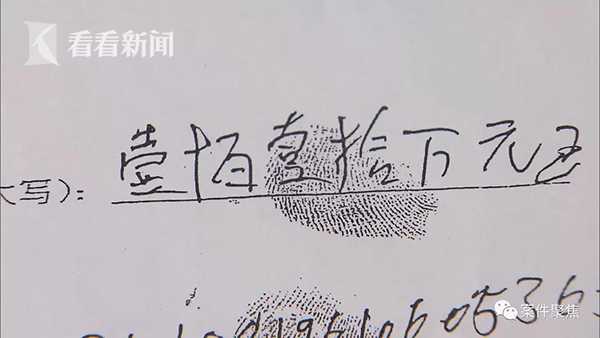 看看新闻
大写):壹佰壹拾万元正
案件聚焦